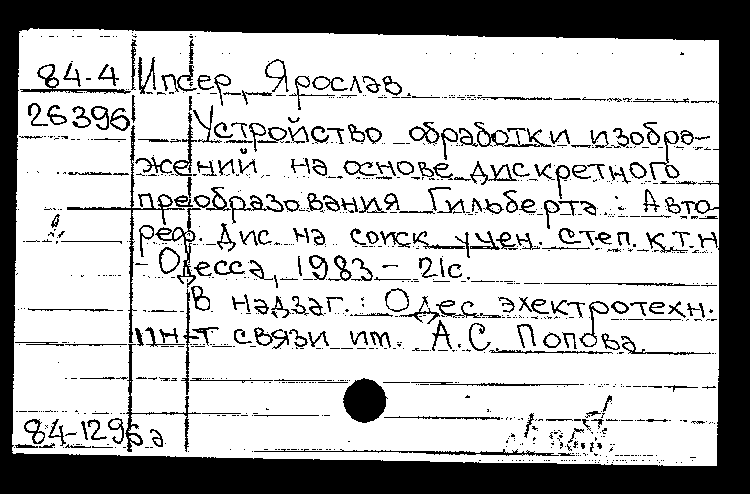 84-4 Ипсер, Ярослав.
26396 Устройство обработки изобра-
жений на основе дискретного
преобразования Гильберта : Авто-
реф. дис на соиск учен. степ. к.т.н
- Одесса, 1983. - 21с.
В надзаг.: Одес. электротехн.
ин-т связи им. А.С. Попова.
84-1296а